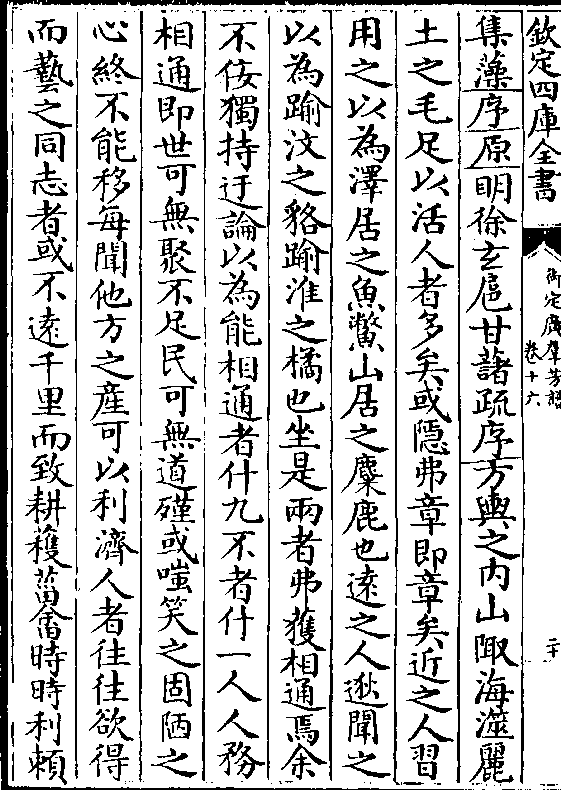 欽定四庫全書
御定廣羣芳譜
卷十六
二十
集藻序原明徐玄扈甘藷疏序方輿之內山陬海澨麗
土之毛足以活人者多矣或隱弗章即章矣近之人習
用之以為澤居之魚鱉山居之麋鹿也遠之人逖聞之
以為踰汶之貉踰淮之橘也坐是兩者弗獲相通焉余
不佞獨持迂論以為能相通者什九不者什一人人務
相通即世可無聚不足民可無道殣或嗤笑之固陋之
心終不能移每聞他方之產可以利濟人者往往欲得
而藝之同志者或不遠千里而致耕穫菑畬時時利賴